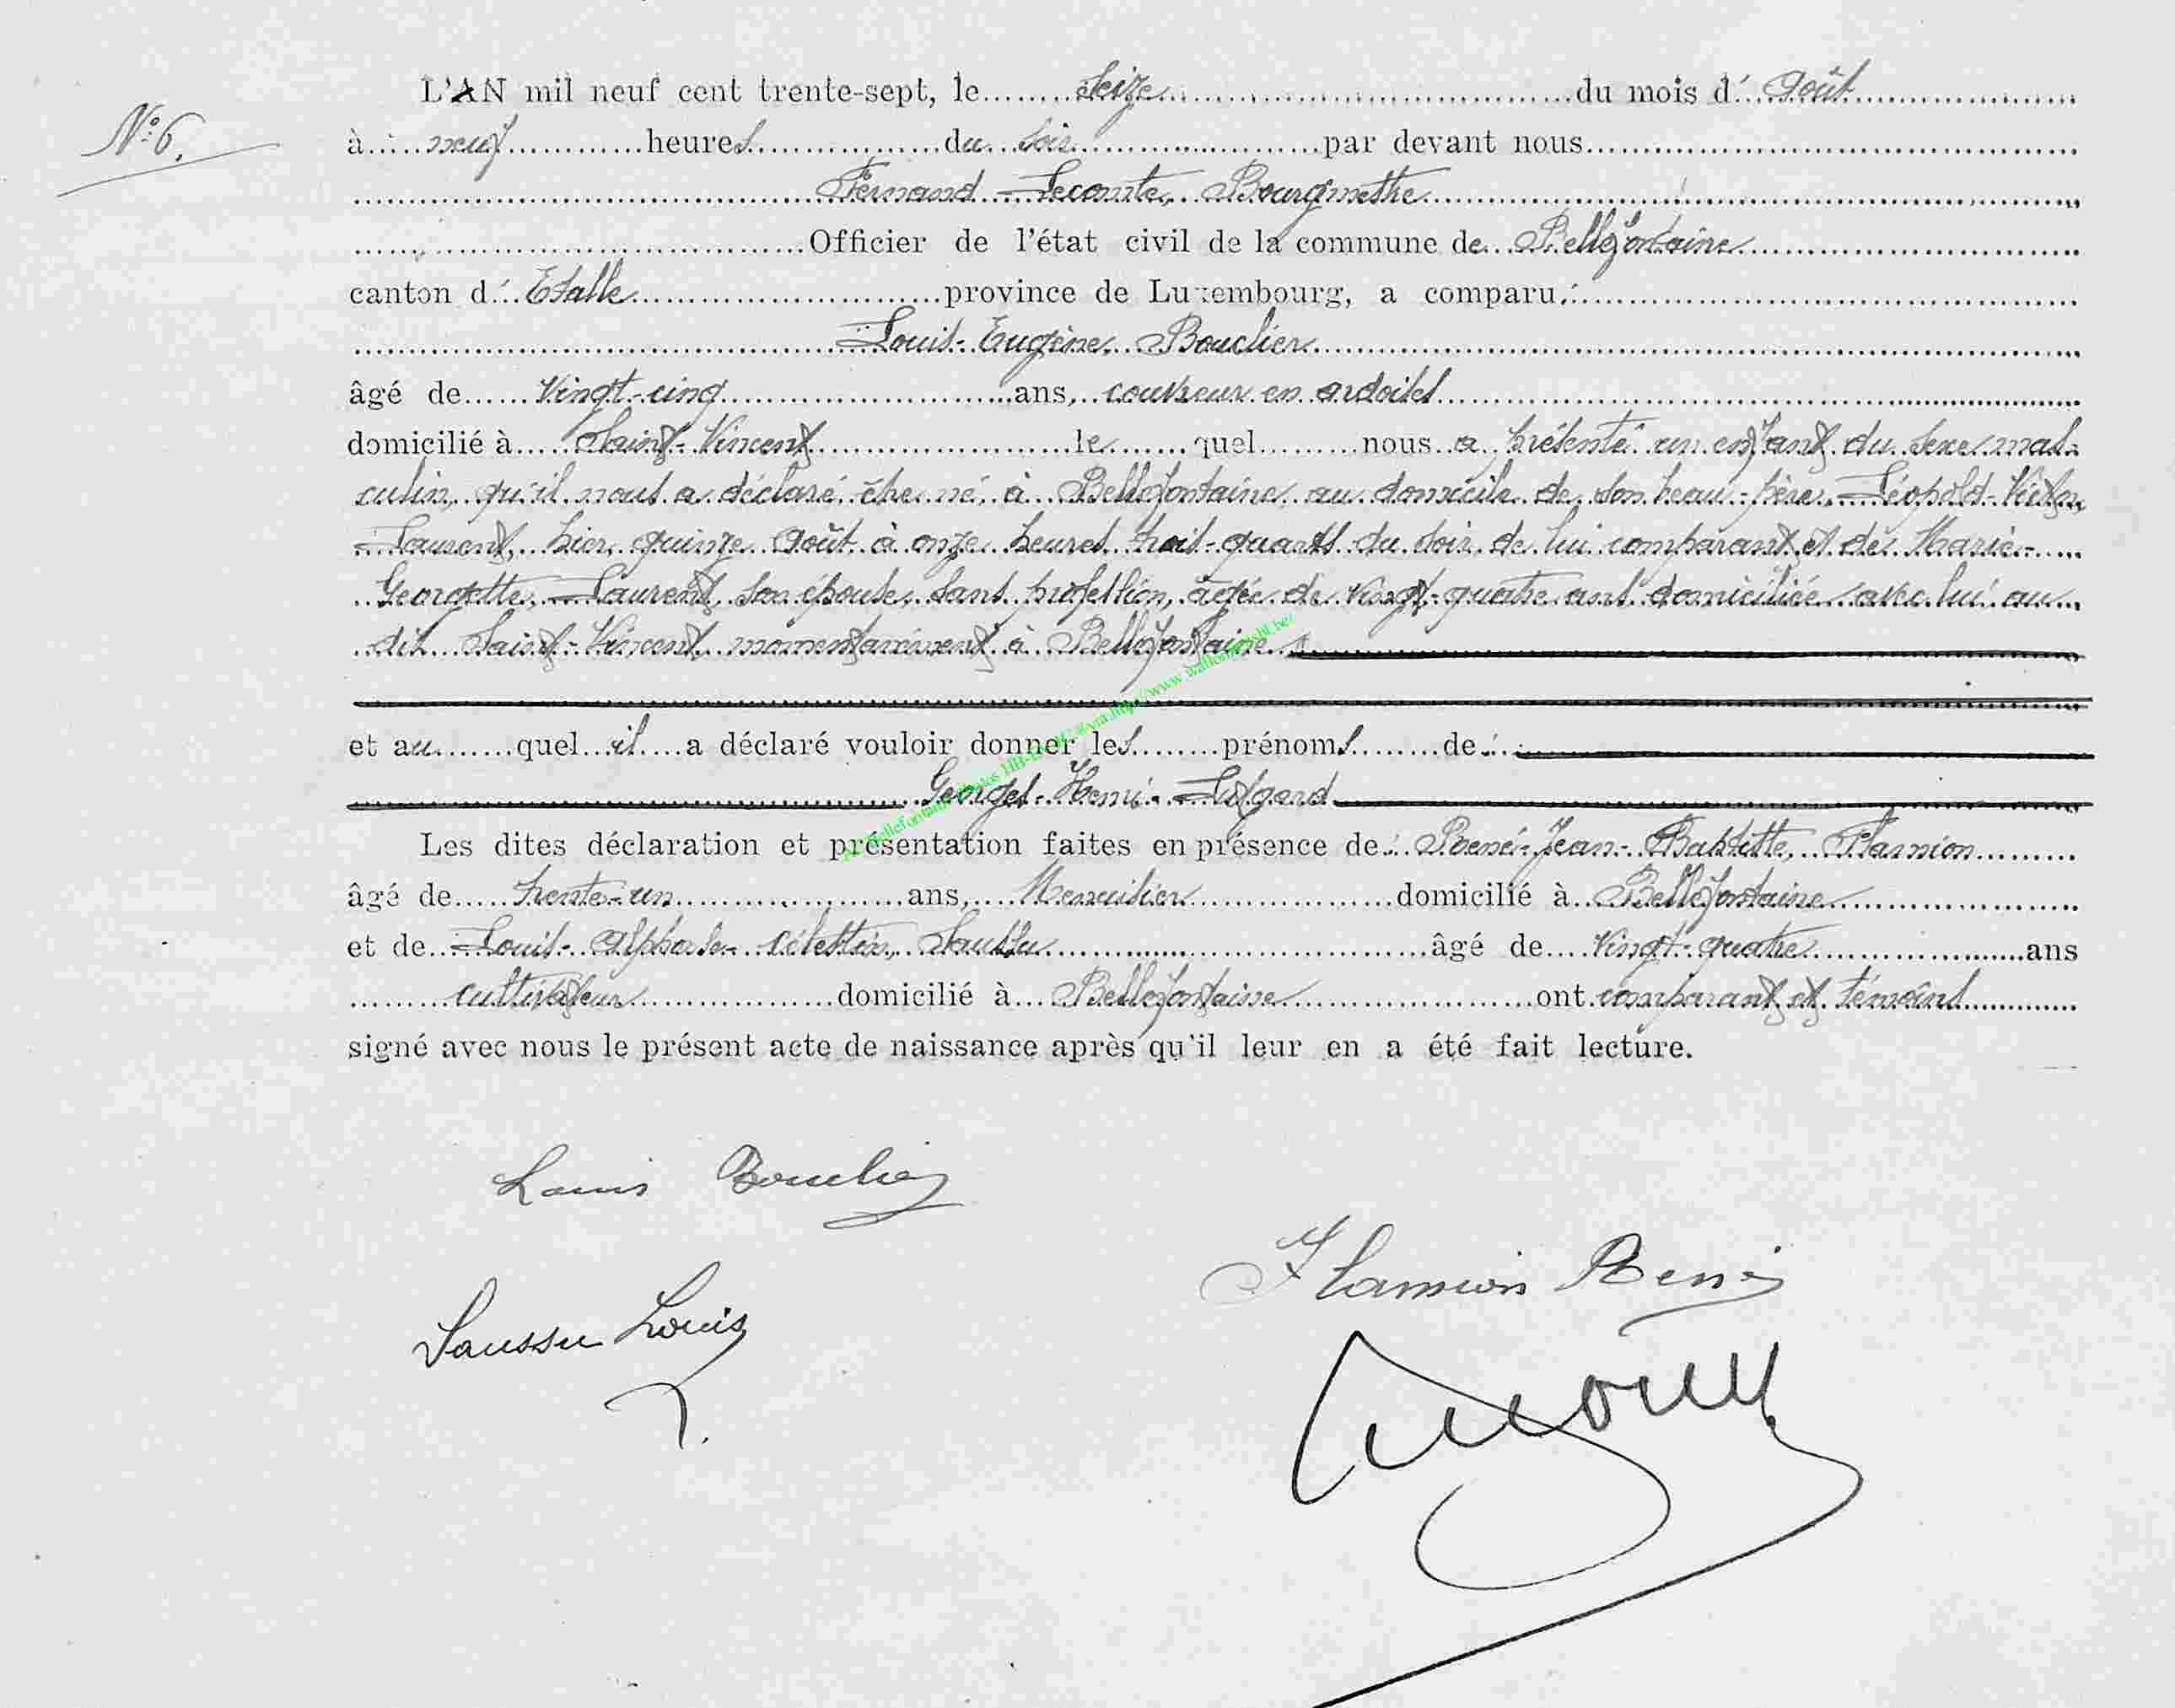 L'AN mil neuf cent trente-sept, le seize du mois d' Août
N° 6.
à neuf heures du soir par devant nous
Fernand Lecomte, Bourgmestre
Officier de l'état civil de la commune de Bellefontaine
canton d' Etalle province de Luxembourg, a comparu
Louis-Eugène Bouclier
âgé de vingt-cinq ans, couvreur en ardoises
domicilié à Saint-Vincent lequel nous a présenté un enfant du sexe mas-
culin, qu'il nous a déclaré être né à Bellefontaine au domicile de son beau-père Léopold-Victor
Laurent, hier, quinze Août à onze heures trois-quarts du soir de lui comparant et de Marie-
Georgette Laurent son épouse, sans profession, âgée de vingt-quatre ans domiciliée avec lui au
dit Saint-Vincent momentanément à Bellefontaine
et auquel il a déclaré vouloir donner les prénoms de
Georges-Henri-Lutgard
Les dites déclaration et présentation faites en présence de René-Jean-Baptiste Flamion
âgé de trente-un ans, Menuisier domicilié à Bellefontaine
et de Louis-Alphonse-Célestin Saussu âgé de vingt-quatre ans
cultivateur domicilié à Bellefontaine ont comparant et témoins
signé avec nous le présent acte de naissance après qu'il leur en a été fait lecture.
Louis Bouclier
Flamion René
Saussu Louis